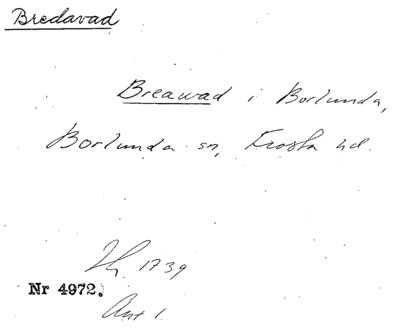 Bredavad
Breawad i Borlunda,
Borlunda sn, Frosta hd.
1739
Nr 4972.
Ant 1.